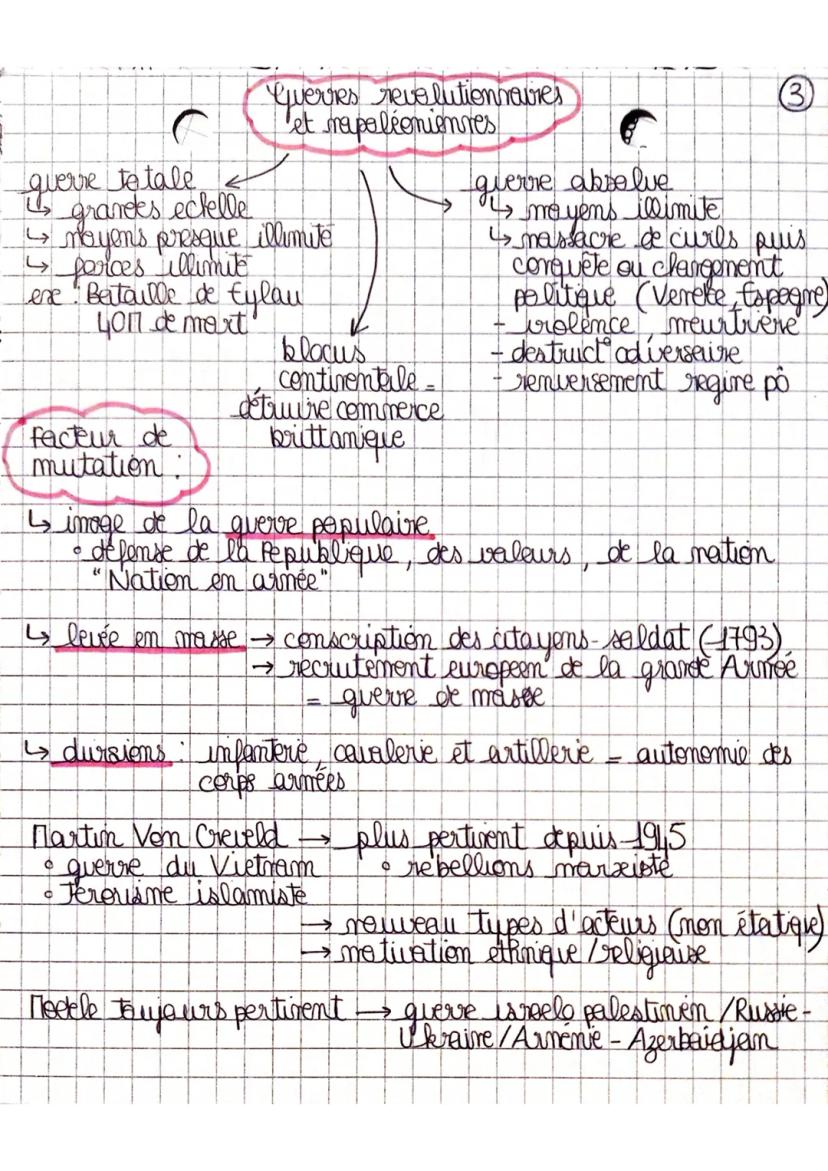 3
Guerres revolutionnaires
et napoléoniennes
guerre totale
↳ grandes echelle
↳ moyens presque illimité
↳ forces illimité
ex : Bataille de Eylau
40M de mort
blocus
continentale =
détruire commerce
brittanique
guerre absolue
↳ moyens illimité
↳ massacre de civils puis
conquête ou changement
politique (Vendée, Espagne)
- violence meurtrière
- destruct° adversaire
- renversement regime pô
facteur de
mutation :
↳ image de la guerre populaire
° défense de la République, des valeurs, de la nation
"Nation en armée"
↳ levée en masse → conscription des citoyens-soldat (1793)
→ recrutement europeen de la grande Armée
= guerre de masse
↳ divisions : infanterie, cavalerie et artillerie = autonomie des
corps armées
Martin Von Creveld → plus pertinent depuis 1945
° guerre du Vietnam ° rébellions marxiste
° Terorisme islamiste
→ nouveau types d'acteurs (non étatique)
→ motivation ethnique/religieuse
Modele toujours pertinent → guerre israelo palestinien /Russie-
Ukraine/Arménie - Azerbaidjan